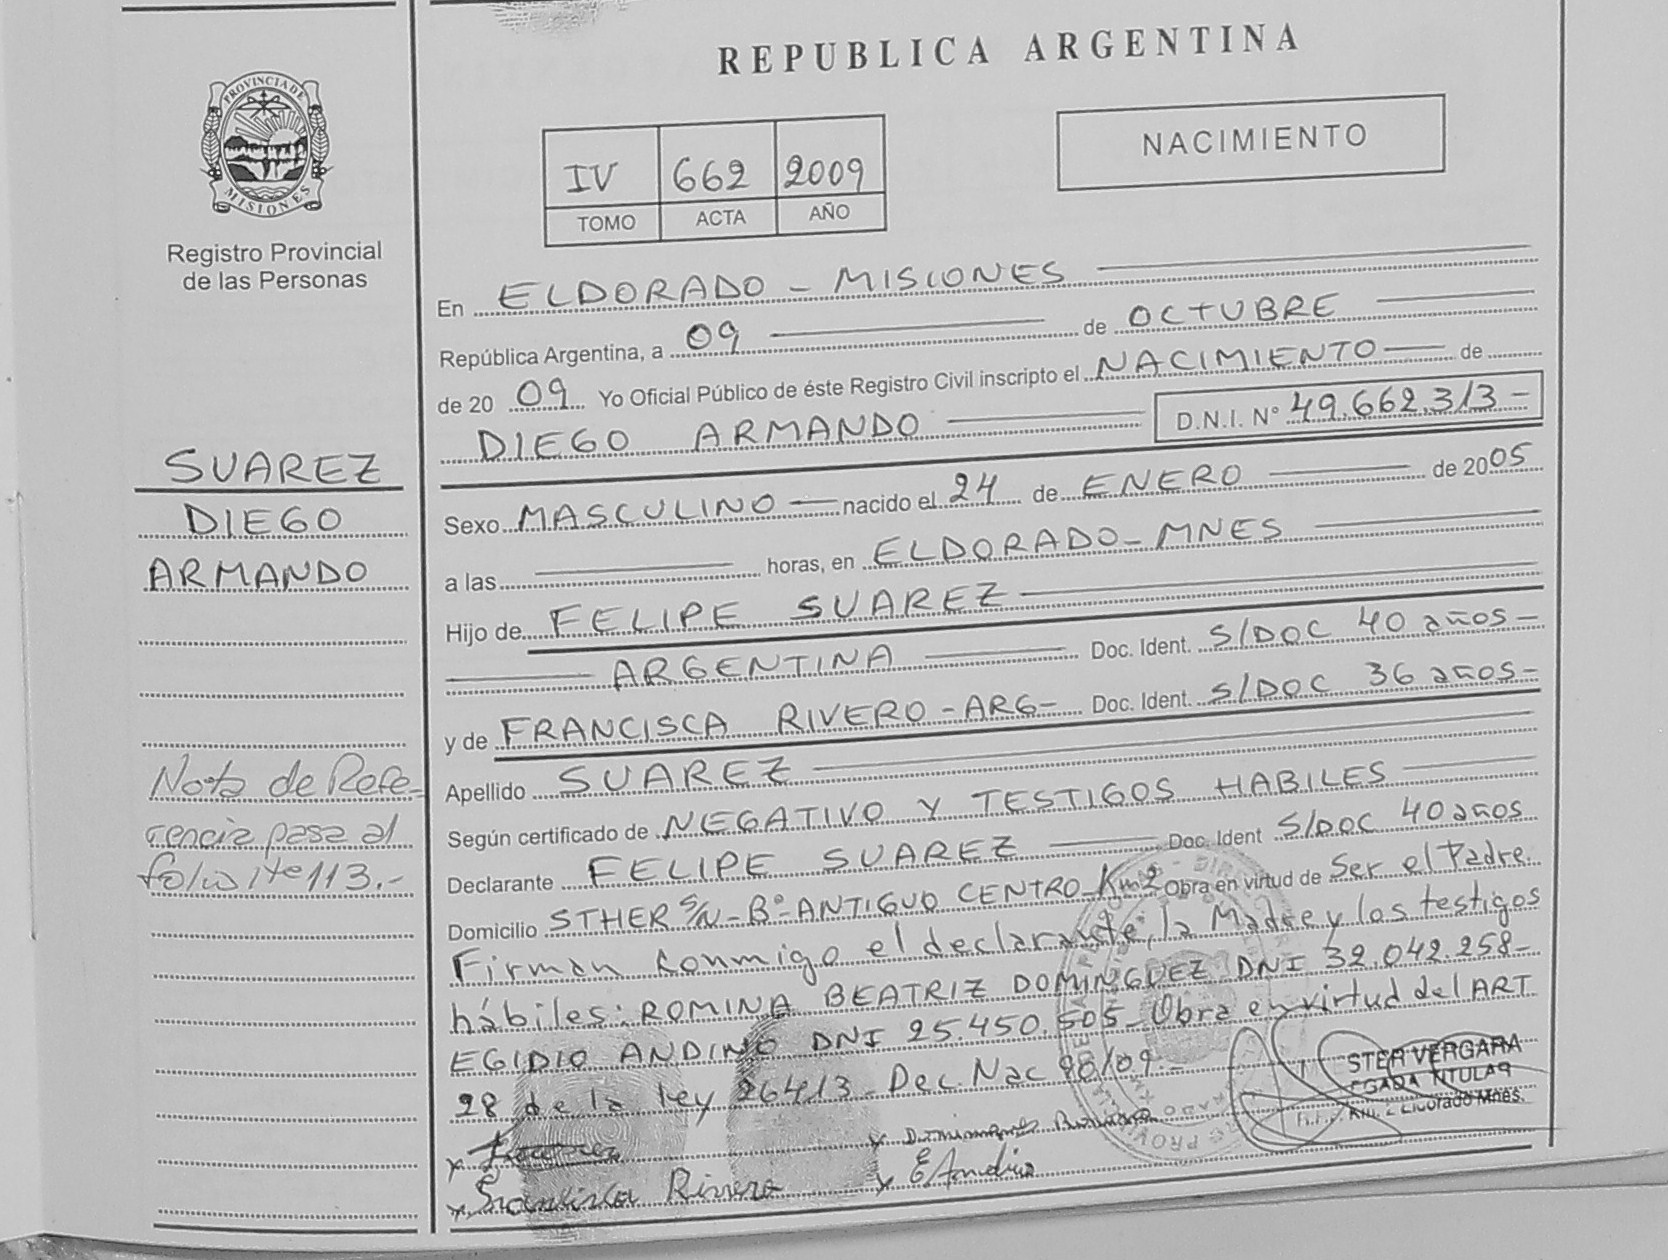 REPUBLICA ARGENTINA
PROVINCIA DE
MISIONES
Registro Provincial
de las Personas
IV 662 2009
TOMO ACTA AÑO
NACIMIENTO
En ELDORADO - MISIONES
República Argentina, a 09 de OCTUBRE
de 20 09 Yo Oficial Público de éste Registro Civil inscripto el NACIMIENTO de
DIEGO ARMANDO D.N.I. Nº 49.662.313-
SUAREZ
DIEGO
ARMANDO
Sexo MASCULINO nacido el 24 de ENERO de 2005
a las horas, en ELDORADO - MNES
Hijo de FELIPE SUAREZ
ARGENTINA Doc. Ident. S/DOC 40 años-
y de FRANCISCA RIVERO - ARG- Doc. Ident. S/DOC 36 años-
Apellido SUAREZ
Según certificado de NEGATIVO Y TESTIGOS HABILES
Declarante FELIPE SUAREZ Doc. Ident S/DOC 40 años
Domicilio STHER S/N - Bº ANTIGUO CENTRO - Km 2 Obra en virtud de Ser el Padre.
Nota de Refe-
rencia pasa al
folio 113.-
Firman conmigo el declarante, la Madre y los testigos
hábiles: ROMINA BEATRIZ DOMINGUEZ DNI 32.042.258-
EGIDIO ANDINO DNI 25.450.505 - Obra en virtud del ART
28 de la ley 26413 - Dec. Nac 90/09.-
STER VERGARA
TITULAR
Km. 2 Eldorado Mnes.
x
x Francisca Rivero
x Dominguez Romina
x E Andino